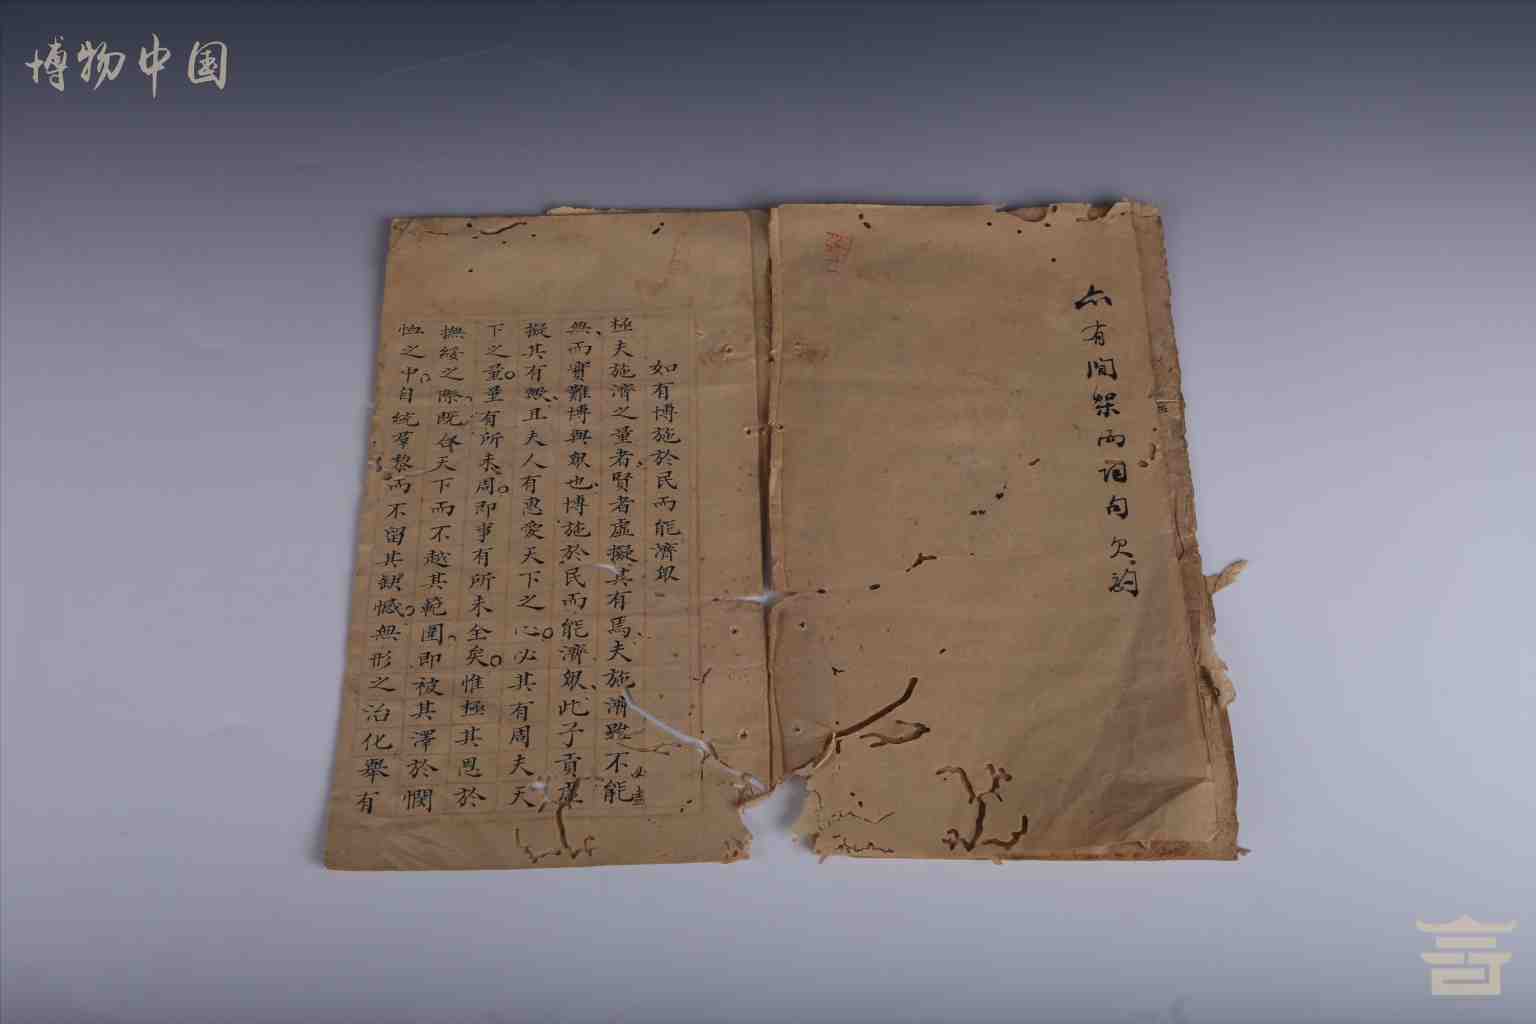 博物中国
亦有間架而詞句欠酌
如有博施於民而能濟眾
極夫施濟之量者賢者虛擬其有焉夫施濟雖不能
無而實難博與眾也博施於民而能濟眾此子貢虛
擬其有歟且夫人有惠愛天下之心必其有周夫天
下之量量有所未周即事有所未全矣惟極其恩於
撫綏之際既合天下而不越其範圍即被其澤於憫
恤之中自統羣黎而不留其缺憾無形之治化舉有